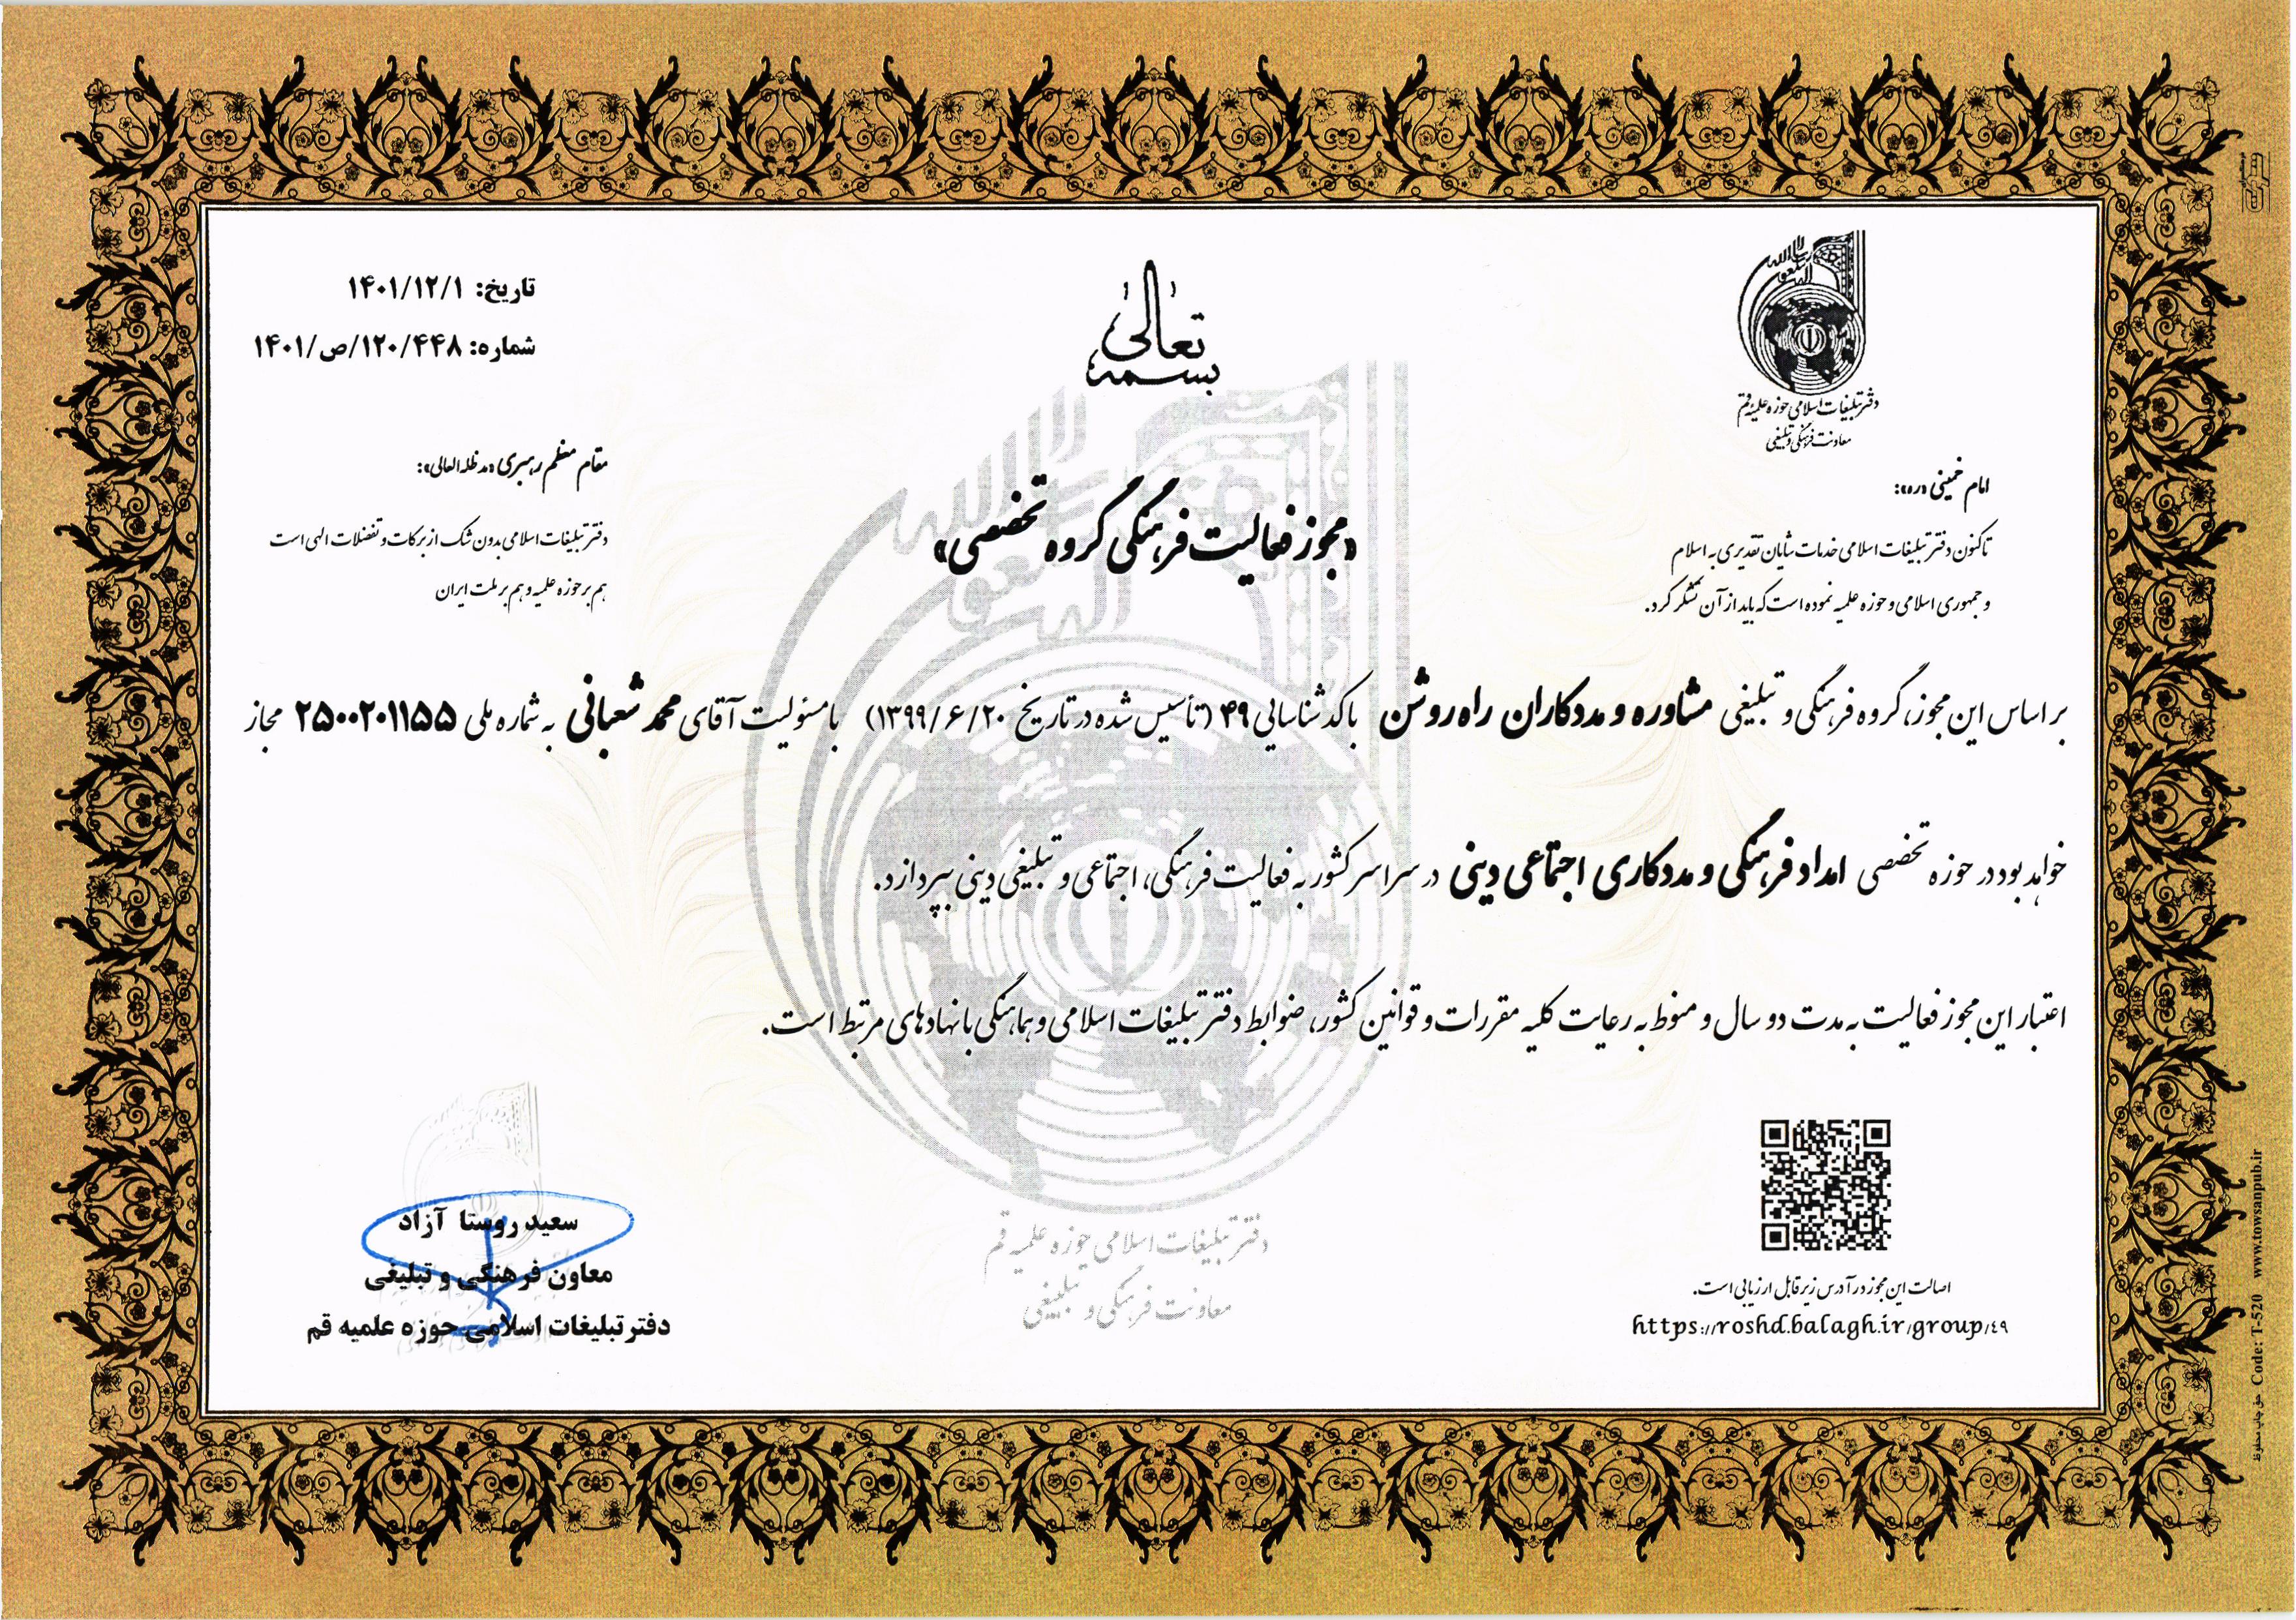 بسمه تعالی
دفتر تبلیغات اسلامی حوزه علمیه قم
معاونت فرهنگی و تبلیغی
تاریخ: ۱۴۰۱/۱۲/۱
شماره: ۱۴۰۱/ص/۱۲۰/۴۴۸
امام خمینی «ره»:
تاکنون دفتر تبلیغات اسلامی خدمات شایان تقدیری به اسلام
و جمهوری اسلامی و حوزه علمیه نموده است که باید از آن تشکر کرد.
مقام معظم رهبری «مدظله العالی»:
دفتر تبلیغات اسلامی بدون شک از برکات و تفضلات الهی است
هم بر حوزه علمیه و هم بر ملت ایران
«مجوز فعالیت فرهنگی گروه تخصصی»
بر اساس این مجوز، گروه فرهنگی و تبلیغی مشاوره و مددکاران راه روشن با کد شناسایی ۴۹ (تأسیس شده در تاریخ ۱۳۹۹/۶/۲۰) با مسئولیت آقای محمد شعبانی به شماره ملی ۲۵۰۰۲۰۱۱۵۵ مجاز
خواهد بود در حوزه تخصصی امداد فرهنگی و مددکاری اجتماعی دینی در سراسر کشور به فعالیت فرهنگی، اجتماعی و تبلیغی دینی بپردازد.
اعتبار این مجوز فعالیت به مدت دو سال و منوط به رعایت کلیه مقررات و قوانین کشور، ضوابط دفتر تبلیغات اسلامی و هماهنگی با نهادهای مرتبط است.
دفتر تبلیغات اسلامی حوزه علمیه قم
معاونت فرهنگی و تبلیغی
اصالت این مجوز در آدرس زیر قابل ارزیابی است.
https://roshd.balagh.ir/group/٤٩
سعید روستا آزاد
معاون فرهنگی و تبلیغی
دفتر تبلیغات اسلامی حوزه علمیه قم
حق چاپ محفوظ Code: T-520 www.towsanpub.ir